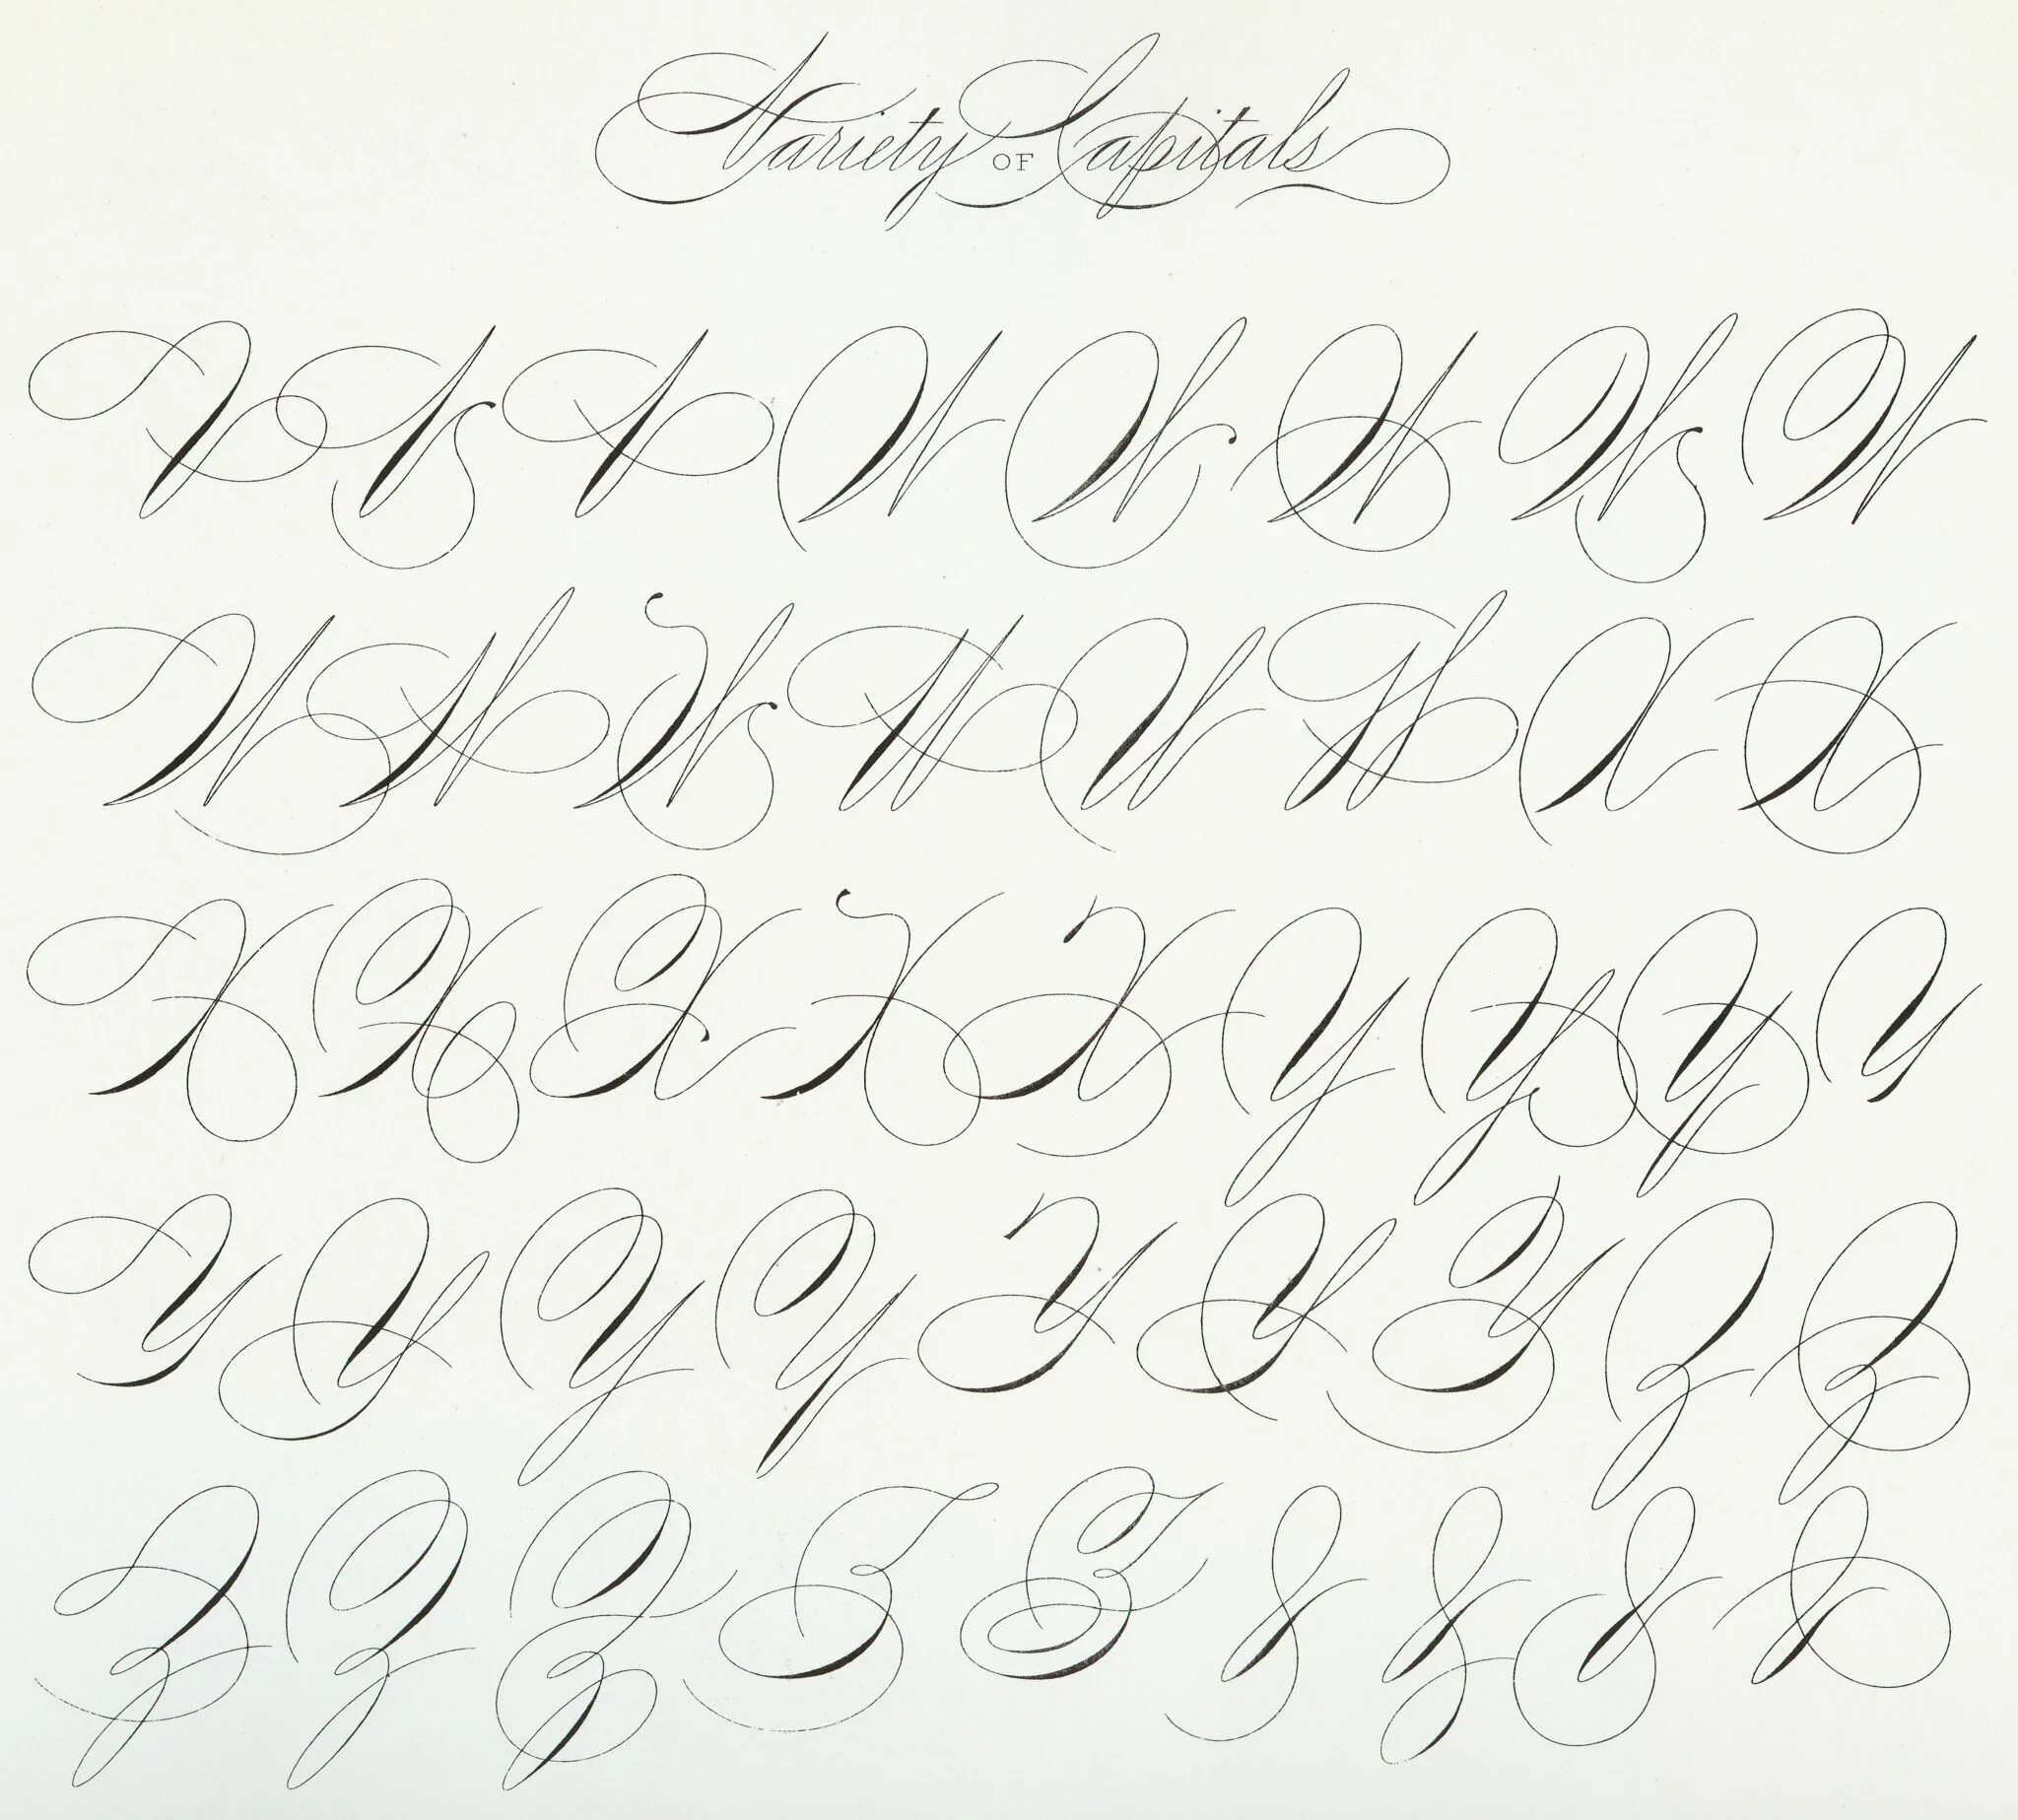 Variety OF Capitals
V V V W W W W W
W W W W W W X X
X X X X X Y Y Y Y
Y Y Y Y Y Y Y Z Z
Z Z Z Z Z & & & &